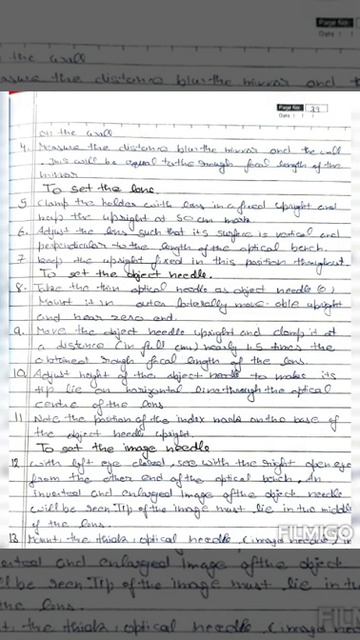 Page No.
Date
the wall
asure the distance b/w the mirror and t
Page No. 39
Date
on the wall
4. Measure the distance b/w the mirror and the wall
. This will be equal to the rough focal length of the
mirror
To set the lens.
5 Clamp the holder with lens in a fixed upright and
keep the upright at 50 cm mark
6. Adjust the lens such that its surface is vertical and
perpendicular to the length of the optical bench.
7 keep the upright fixed in this position throughout.
To set the object needle.
8. Take the thin optical needle as object needle O,
Mount it in outer laterally move-able upright
and near zero end.
9. Move the object needle upright and clamp it at
a distance (in full cm) nearly 1.5 times the
obtained rough focal length of the lens.
10. Adjust height of the object needle to make its
tip lie on horizontal line through the optical
centre of the lens
11 Note the position of the index mark on the base of
the object needle upright.
To set the image needle
12 With left eye closed, see with the right open eye
from the other end of the optical bench. An
inverted and enlarged image of the object needle
will be seen. Tip of the image must lie in the middle
of the lens.
13 Mount the thick optical needle, (image needle) in
FILMIGO
erted and enlarged image of the object
ll be seen. Tip of the image must lie in t
the lens.
t the thick, optical needle, (image need
FILMIGO